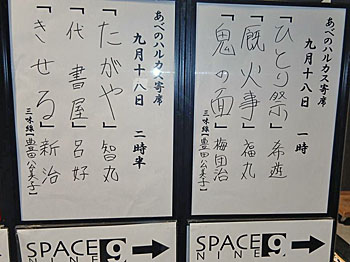 あべのハルカス寄席
九月十八日 一時
「ひとり祭」 希遊
「厩火事」 福丸
「鬼の面」 梅団治
三味線【豊田公美子】
あべのハルカス寄席
九月十八日 二時半
「たがや」 智丸
「代書屋」 呂好
「きせる」 新治
三味線【豊田公美子】
SPACE
NINE 9
SPACE
NINE 9